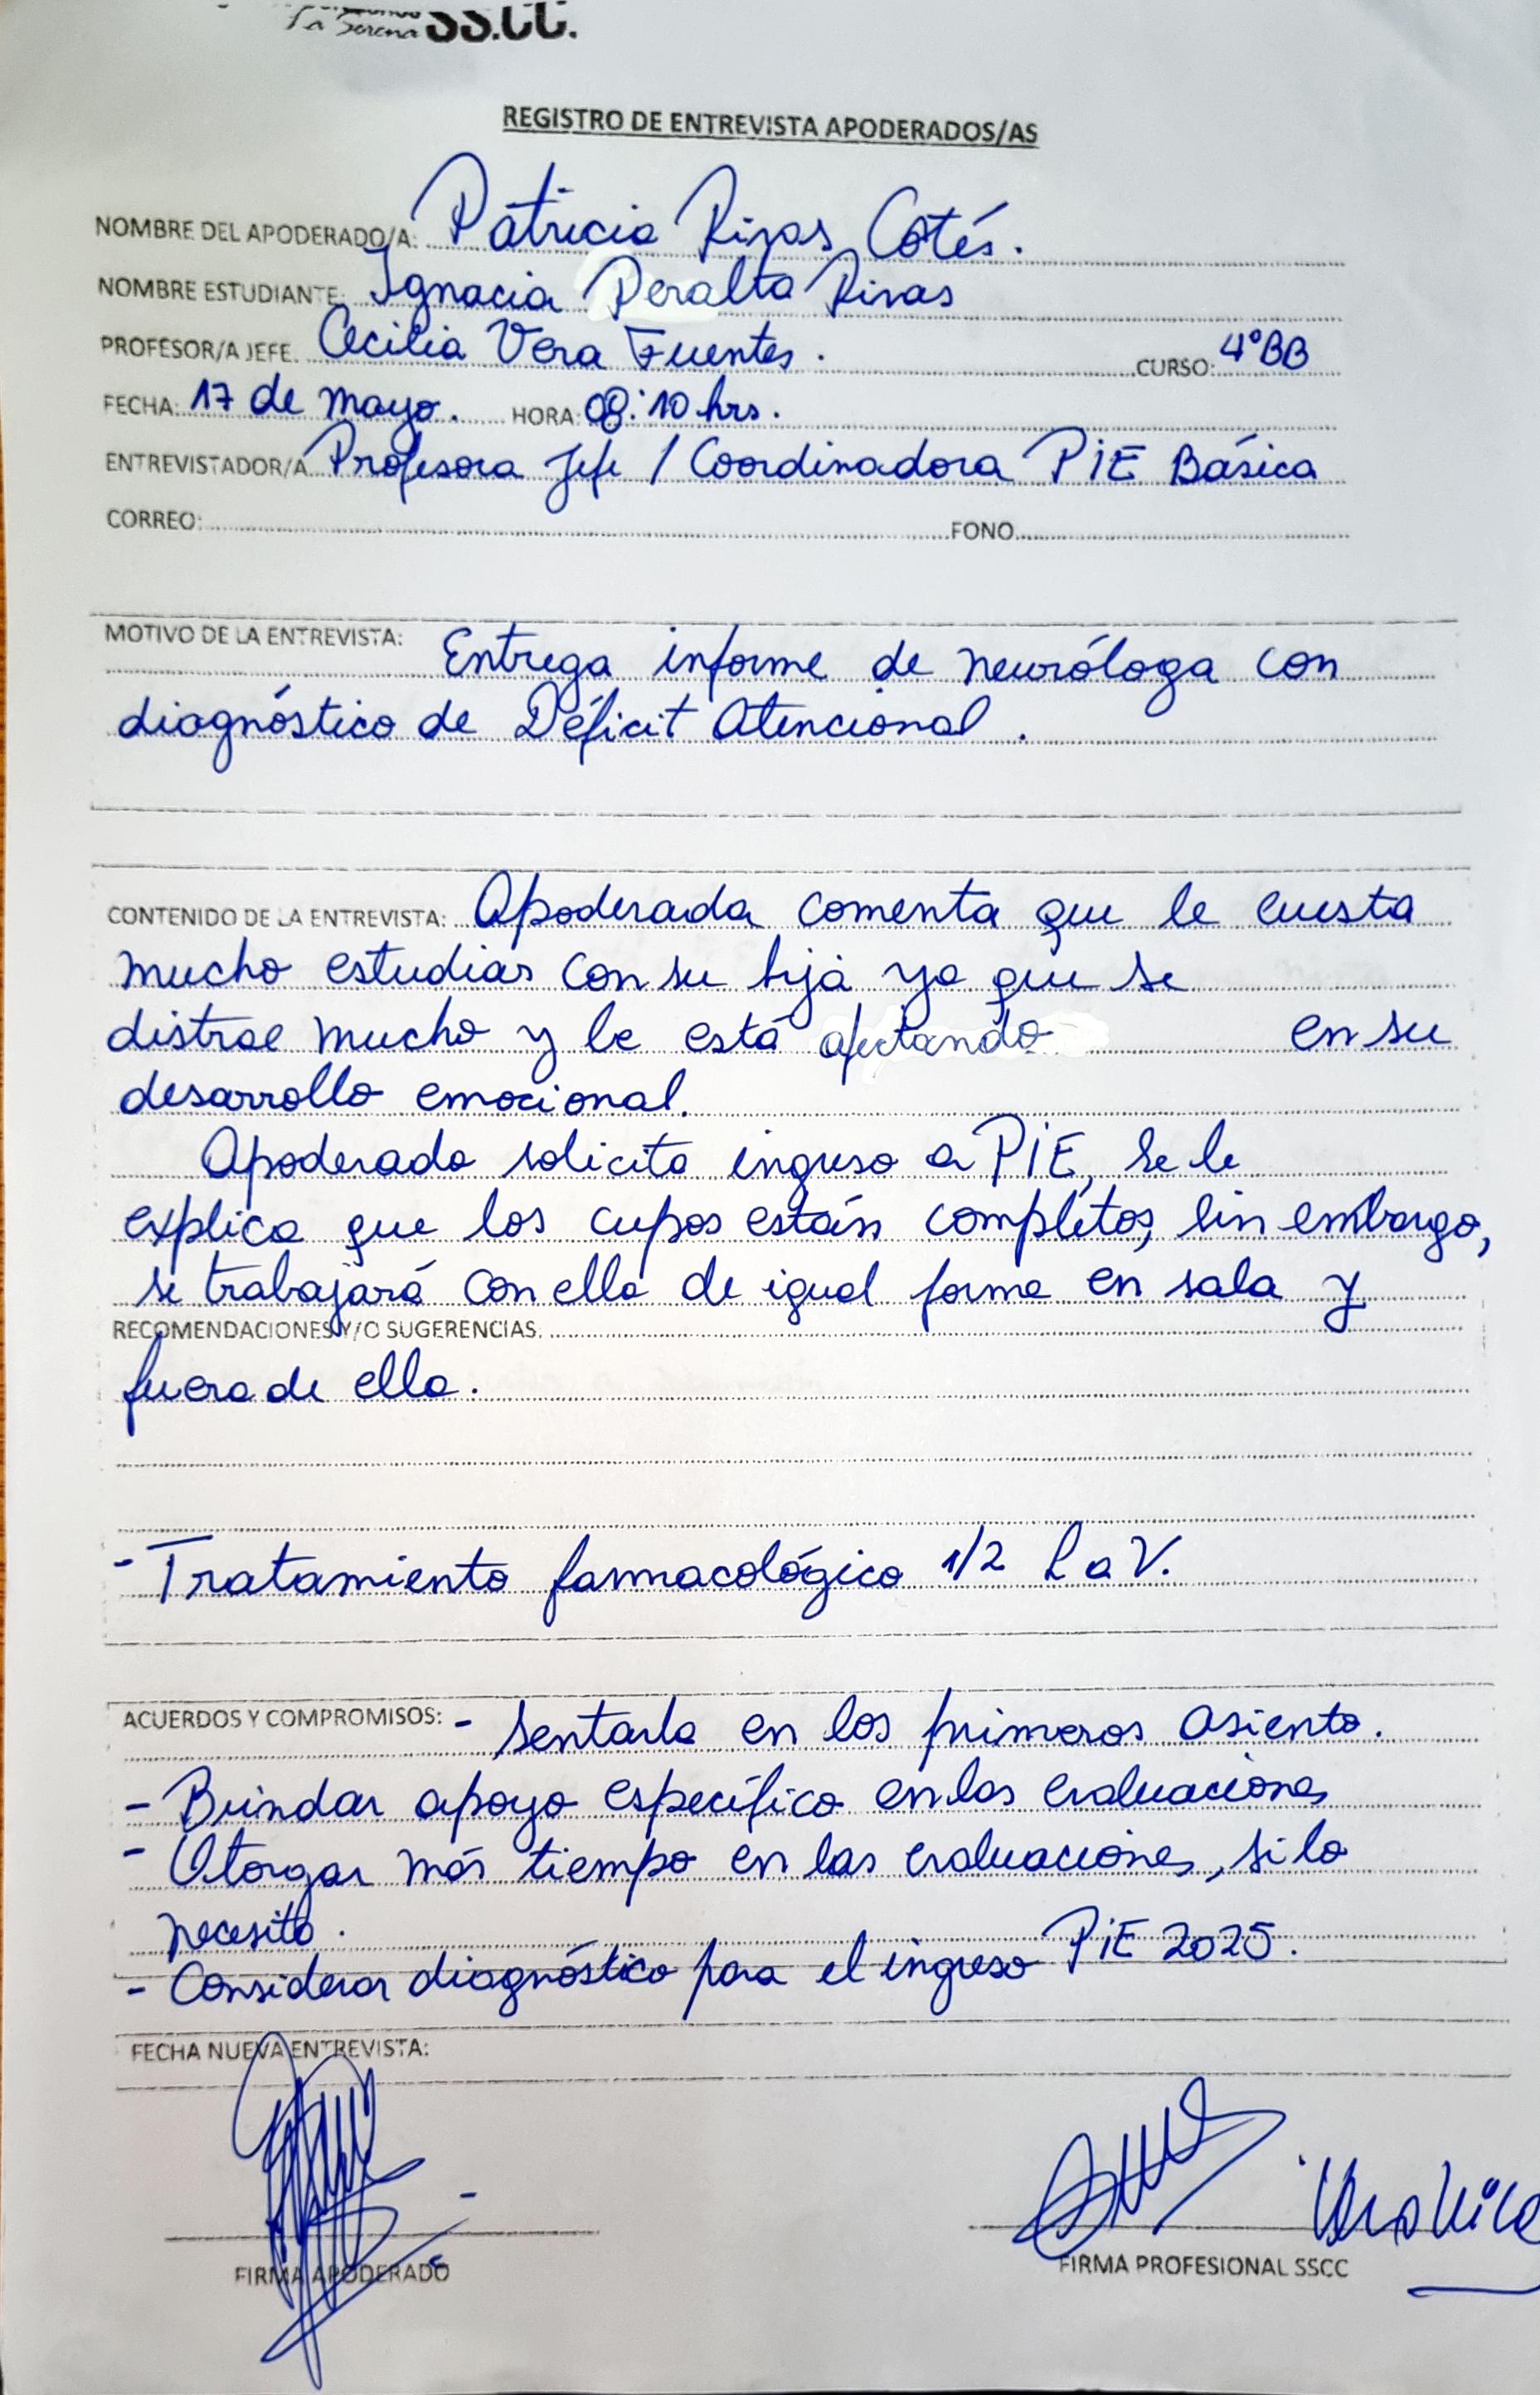 La Serena SS.CC.
REGISTRO DE ENTREVISTA APODERADOS/AS
NOMBRE DEL APODERADO/A: Patricia Rivas Cotés.
NOMBRE ESTUDIANTE: Ignacia Peralta Rivas
PROFESOR/A JEFE. Cecilia Vera Fuentes. CURSO: 4°BB
FECHA: 17 de mayo. HORA: 08:10 hrs.
ENTREVISTADOR/A Profesora Jefe / Coordinadora PIE Básica
CORREO: FONO
MOTIVO DE LA ENTREVISTA: Entrega informe de neuróloga con
diagnóstico de Déficit Atencional.
CONTENIDO DE LA ENTREVISTA: Apoderada comenta que le cuesta
mucho estudiar con su hija ya que se
distrae mucho y le está afectando en su
desarrollo emocional.
Apoderado solicita ingreso a PIE, se le
explica que los cupos están completos, sin embargo,
se trabajará con ella de igual forma en sala y
RECOMENDACIONES Y/O SUGERENCIAS.
fuera de ella.
- Tratamiento farmacológico 1/2 L a V.
ACUERDOS Y COMPROMISOS: - Sentarla en los primeros asiento.
- Brindar apoyo específico en las evaluaciones
- Otorgar más tiempo en las evaluaciones, si lo
necesita.
- Considerar diagnóstico para el ingreso PIE 2025.
FECHA NUEVA ENTREVISTA:
FIRMA APODERADO
FIRMA PROFESIONAL SSCC